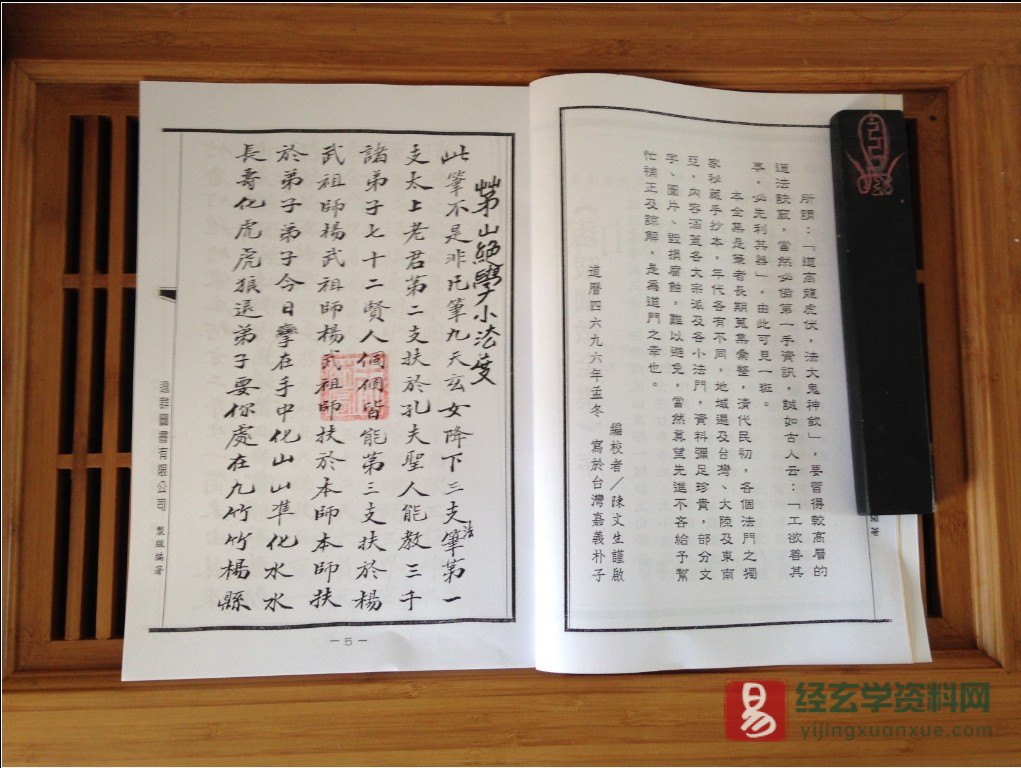 所謂：「道高龍虎伏，法大鬼神欽」，要習得較高層的
道法訣竅，當然必備第一手資訊，誠如古人云：「工欲善其
事，必先利其器」，由此可見一班。
本全集是筆者長期蒐集彙整，清代民初，各個法門之獨
家秘藏手抄本，年代各有不同，地域遍及台灣、大陸及東南
亞，內容涵蓋各大宗派及各小法門，資料彌足珍貴，部分文
字、圖片、毀損磨蝕，難以避免，當然冀望先進不吝給予幫
忙補正及諒解，是為道門之幸也。
編校者／陳文生謹啟
道曆四六九六年孟冬　寫於台灣嘉義朴子
編著
茅山絕學小法
此筆不是非凡筆九天玄女降下三支筆第一
法
支太上老君第二支扶於孔夫聖人能教三千
諸弟子七十二賢人個個皆能第三支扶於楊
武祖師楊武祖師楊武祖師扶於本師本師扶
於弟子弟子今日擧在手中化山山準化水水
長壽化虎虎狼退弟子要你處在九竹竹楊縣
逸群圖書有限公司 製版編著
－5－
易
经玄学资料网
yijingxuanxue.com